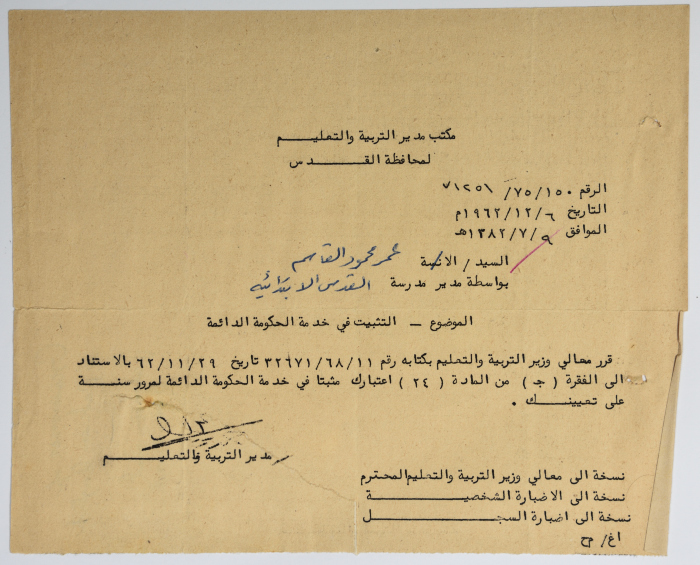 مكتب مدير التربية والتعليم
لمحافظة القدس
الرقم ١٥٠/٧٥/
التاريخ ٦/١٢/١٩٦٢م
الموافق ٩/٧/١٣٨٢هـ
السيد / الانسة عمر محمود القاسم
بواسطة مدير مدرسة القدس الابتدائيه
الموضوع – التثبيت في خدمة الحكومة الدائمة
قرر معالي وزير التربية والتعليم بكتابه رقم ٣٢٦٧١/٦٨/١١ تاريخ ٦٢/١١/٢٩ بالاستناد
الى الفقرة ( جـ ) من المادة ( ٢٤ ) اعتبارك مثبتا في خدمة الحكومة الدائمة لمرور سنة
على تعيينك .
مدير التربية والتعليم
نسخة الى معالي وزير التربية والتعليم المحترم
نسخة الى الاضبارة الشخصية
نسخة الى اضبارة السجل
اغ/ ح